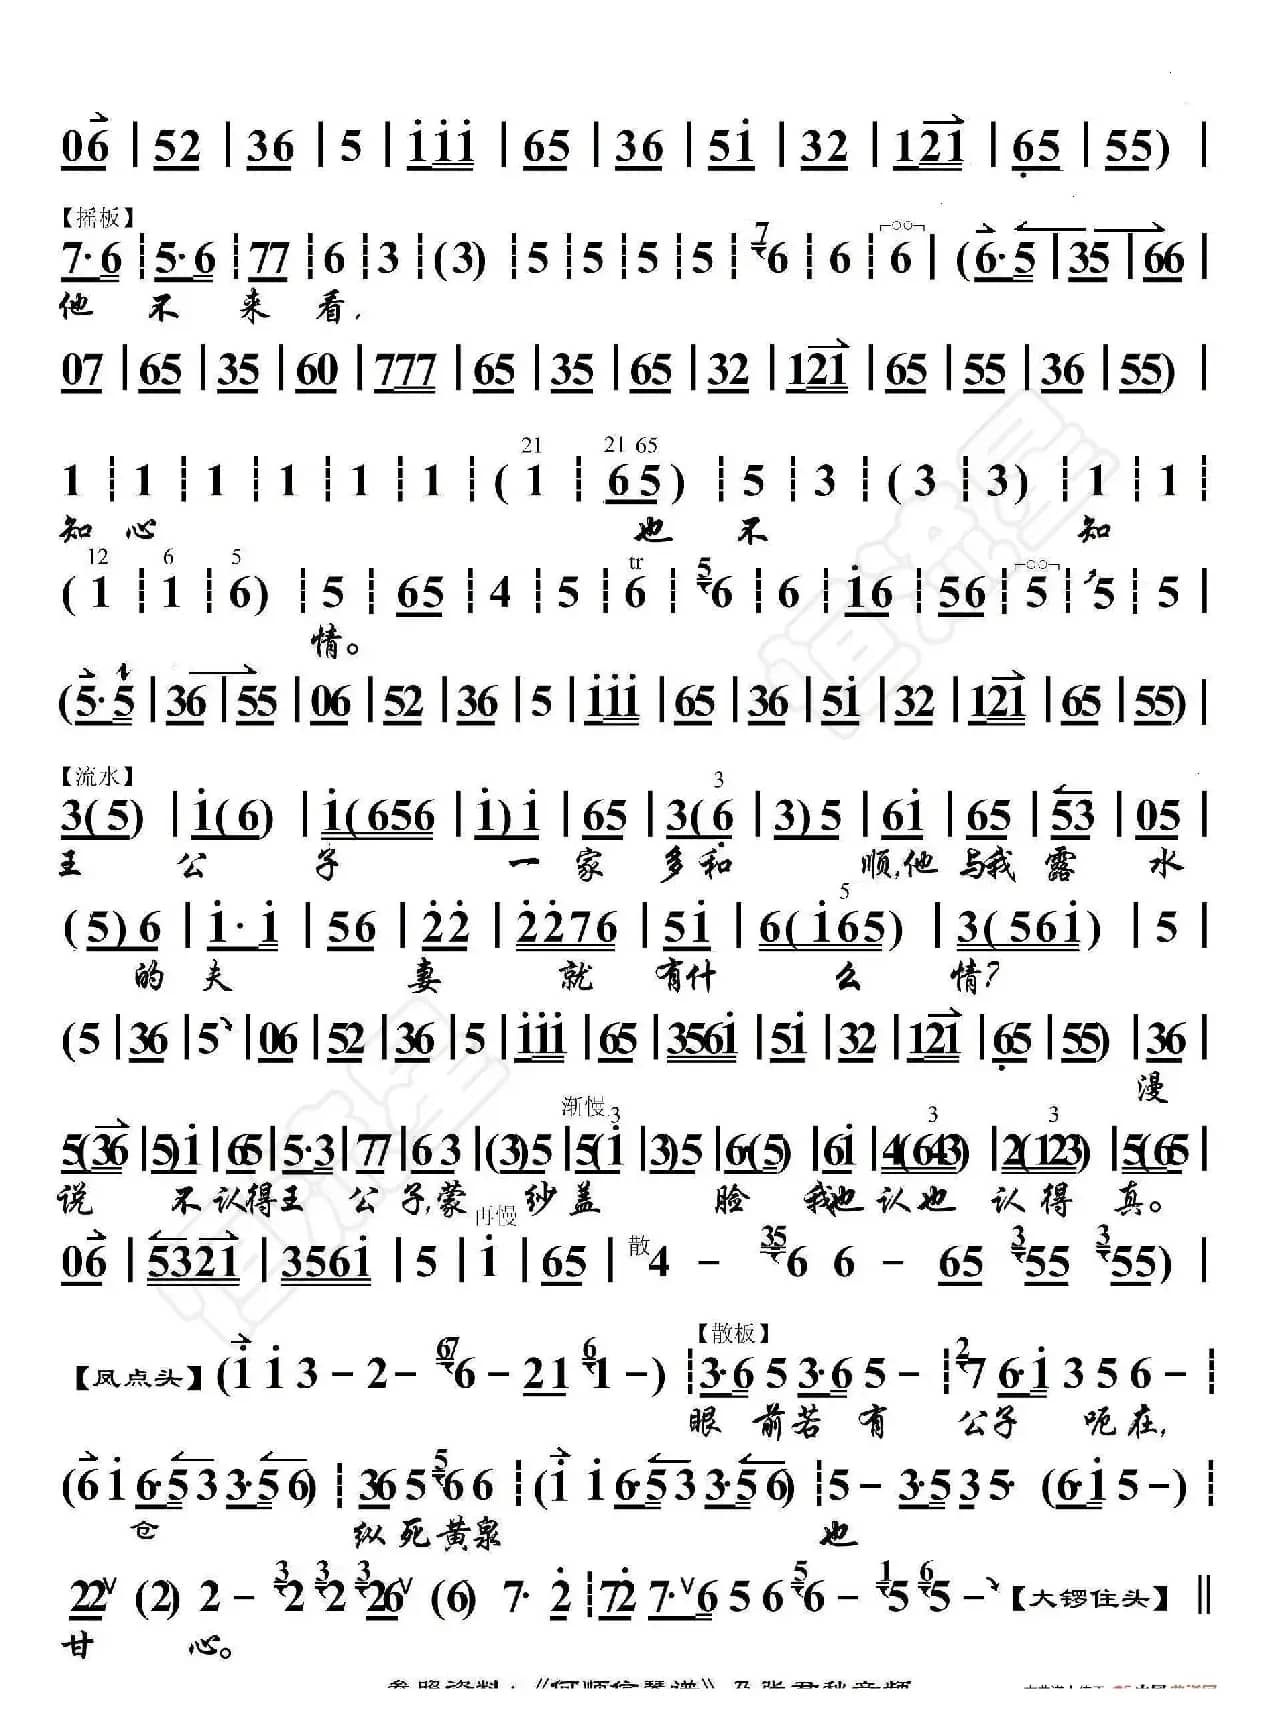 06 | 52 | 36 | 5 | iii | 65 | 36 | 5i | 32 | 121 | 65 | 55) |
【摇板】
7·6 ┊ 5·6 ┊ 77 ┊ 6 ┊ 3 ┊ (3) ┊ 5 ┊ 5 ┊ 5 ┊ 5 ┊ 76 ┊ 6 ┊ 6 | (6·5 | 35 | 66 |
他 不 来 看,
07 | 65 | 35 | 60 | 777 | 65 | 35 | 65 | 32 | 121 | 65 | 55 | 36 | 55) |
21 21 65
1 ┊ 1 ┊ 1 ┊ 1 ┊ 1 ┊ 1 ┊ (1 ┊ 65) ┊ 5 ┊ 3 ┊ (3 ┊ 3) ┊ 1 ┊ 1 ┊
知 心 也 不 知
12 6 5 tr
(1 ┊ 1 ┊ 6) ┊ 5 ┊ 65 ┊ 4 ┊ 5 ┊ 6 ┊ 56 ┊ 6 ┊ i6 ┊ 56 ┊ 5 ┊ 5 ┊ 5 |
情。
(5·5 | 36 | 55 | 06 | 52 | 36 | 5 | iii | 65 | 36 | 5i | 32 | 121 | 65 | 55) |
【流水】
3
3(5) | i(6) | i(656 | i) i | 65 | 3(6 | 3) 5 | 6i | 65 | 53 | 05 |
王 公 子 一 家 多 和 顺,他 与我 露 水
5
(5) 6 | i·i | 56 | 22 | 2276 | 5i | 6(i65) | 3(56i) | 5 |
的 夫 妻 就 有什 么 情?
(5 | 36 | 5 | 06 | 52 | 36 | 5 | iii | 65 | 356i | 5i | 32 | 121 | 65 | 55) | 36 |
漫
渐慢 3 3 3
5(36 | 5) i | 65 | 5·3 | 77 | 63 | (3)5 | 5(i | 3) 5 | 6·(5) | 6i | 4(643) | 2(123) | 5(65 |
说 不 认得王 公 子,蒙 纱 盖 脸 我也 认 也 认 得 真。
再慢
06 | 5321 | 356i | 5 | i | 65 | 散 4 - 356 6 - 65 355 355) |
【散板】
【凤点头】 (i i 3 - 2 - 676 - 21 61 -) ┊ 3·6 5 3·6 5 - ┊ 27 6·i 3 5 6 - ┊
眼 前若 有 公子 呃在,
(6 i 6·5 3 3·5 6) ┊ 36 5 56 6 ┊ (i i 6·5 3 3·5 6) ┊ 5 - 3·5 3 5· (6·i 5 -) ┊
仓 纵 死 黄泉 也
22 (2) 2 - 32 32 326 (6) 7· 2 ┊ 72 7· 6 5 6 56 - 15 65 - 【大锣住头】 ‖
甘 心。
参照资料:《何师信琴谱》及张君秋音频